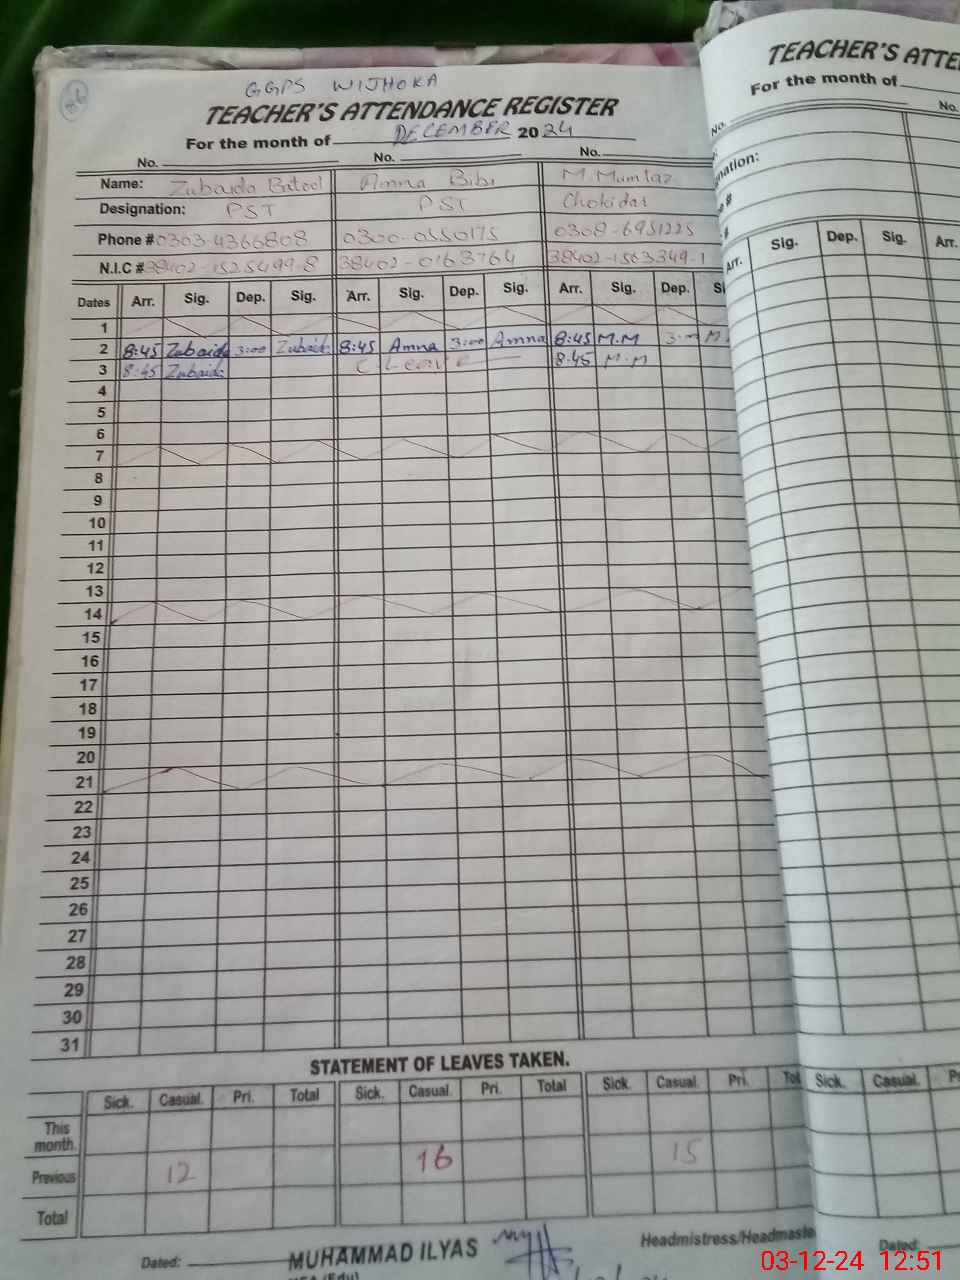 86
GGPS WIJHOKA
TEACHER'S ATTENDANCE REGISTER
For the month of DECEMBER 2024
No. No. No.
Name: Zubaida Batool Amna Bibi M. Mumtaz
Designation: PST PST Chokidar
Phone # 0303-4366808 0300-0550175 0308-6951225
N.I.C # 38402-1525499-8 38402-0163764 38402-1563349-1
Dates Arr. Sig. Dep. Sig. Arr. Sig. Dep. Sig. Arr. Sig. Dep.
1
2 8:45 Zubaida 3:00 Zubaida 8:45 Amna 3:00 Amna 8:45 M.M 3:00 M
3 8:45 Zubaida C. Leave 8:45 M.M
4
5
6
7
8
9
10
11
12
13
14
15
16
17
18
19
20
21
22
23
24
25
26
27
28
29
30
31
STATEMENT OF LEAVES TAKEN.
Sick. Casual. Pri. Total Sick. Casual. Pri. Total Sick. Casual. Pri. Tot
This month.
Previous 12 16 15
Total
Dated: MUHAMMAD ILYAS Headmistress/Headmaste
(Edu)
TEACHER'S ATTE
For the month of
No. No.
nation:
#
Arr. Sig. Dep. Sig. Arr.
Sick. Casual. P
Dated:
03-12-24 12:51